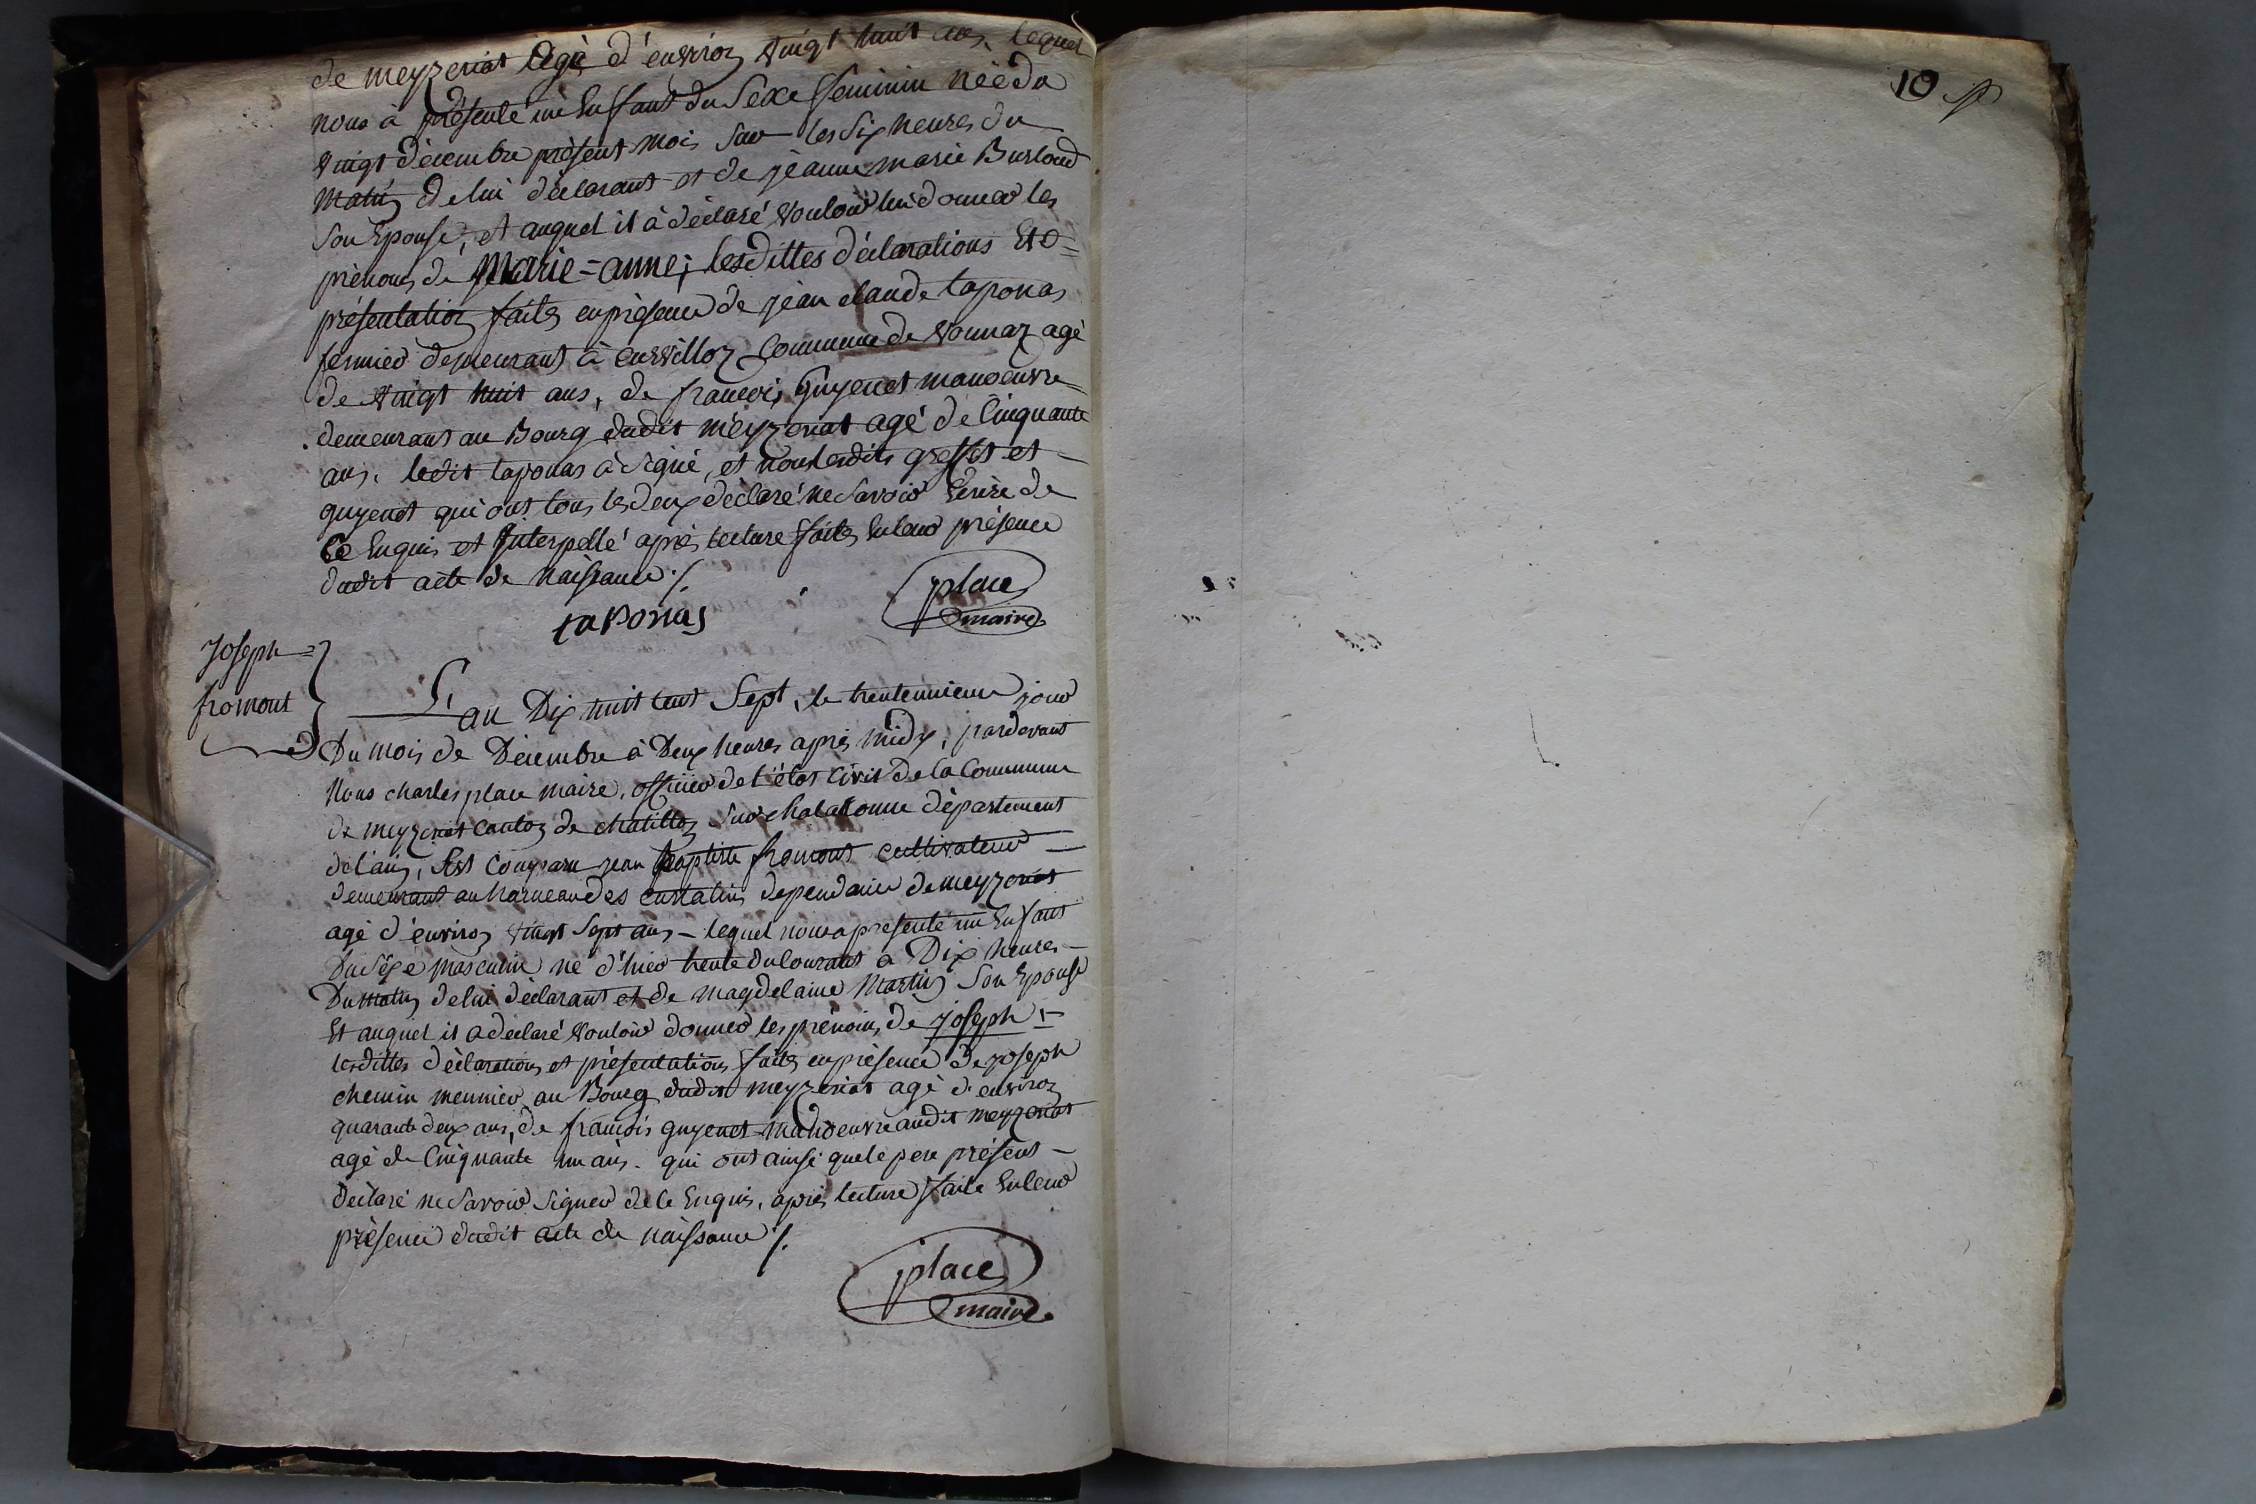 de meyzeriat Agé d'environ vingt huit ans, lequel
nous à présenté un Enfant du Sexe feminin née du
vingt décembre présent mois sur les Six heures du
matin de lui déclarant et de jéanne marie Burloud
Son Epouse, et auquel il à déclaré vouloir lui donner les
prénoms de Marie=anne; lesdittes déclarations Et=
présentation faites en présence de jéan claude taponas
fermier demeurant à curvillon Commune de vonnaz agé
de vingt huit ans, de francois Guyenet manoeuvre
demeurant au Bourg dudit méyzeriat agé de Cinquante
ans. ledit taponas à Signé, et non lesdits greffet et
guyenet qui ont tous les deux déclaré ne Savoir Ecrire de
Ce Enquis et Interpellé après lecture faite En leur présence
dudit acte de Naissance ./.
taponas
place
maire
Joseph=
fromont
L'
an Dix huit cent Sept, le trentunieme jour
Du mois de Décembre à Deux heures après midy, pardevant
Nous charles place maire, officier de l'état Civil de la Commune
de meyzeriat canton de chatillon sur chalaronne département
de l'ain, Est Comparu jean baptiste fromont cultivateur
demeurant au hameau des curtalins dependance de meyzeriat
agé d'environ vingt Sept ans - lequel nous a presenté un Enfant
Du Séxe masculin né d'hier trente du Courant a Dix heures
Du matin de lui déclarant et de magdelaine Martin Son Epouse
Et auquel il a déclaré vouloir donner les prénoms de joseph ;-
lesdittes déclarations et présentations faites en présence de joseph
chemin meunier au Bourg dudit meyzeriat agé d'environ
quarante deux ans, de francois guyenet manoeuvre audit meyzeriat
agé de Cinquante un ans. qui ont ainsi que le pere présent
Déclaré ne Savoir Signer de Ce Enquis, après lecture faite En leur
présence dudit acte de naissance ./.
place
maire
10